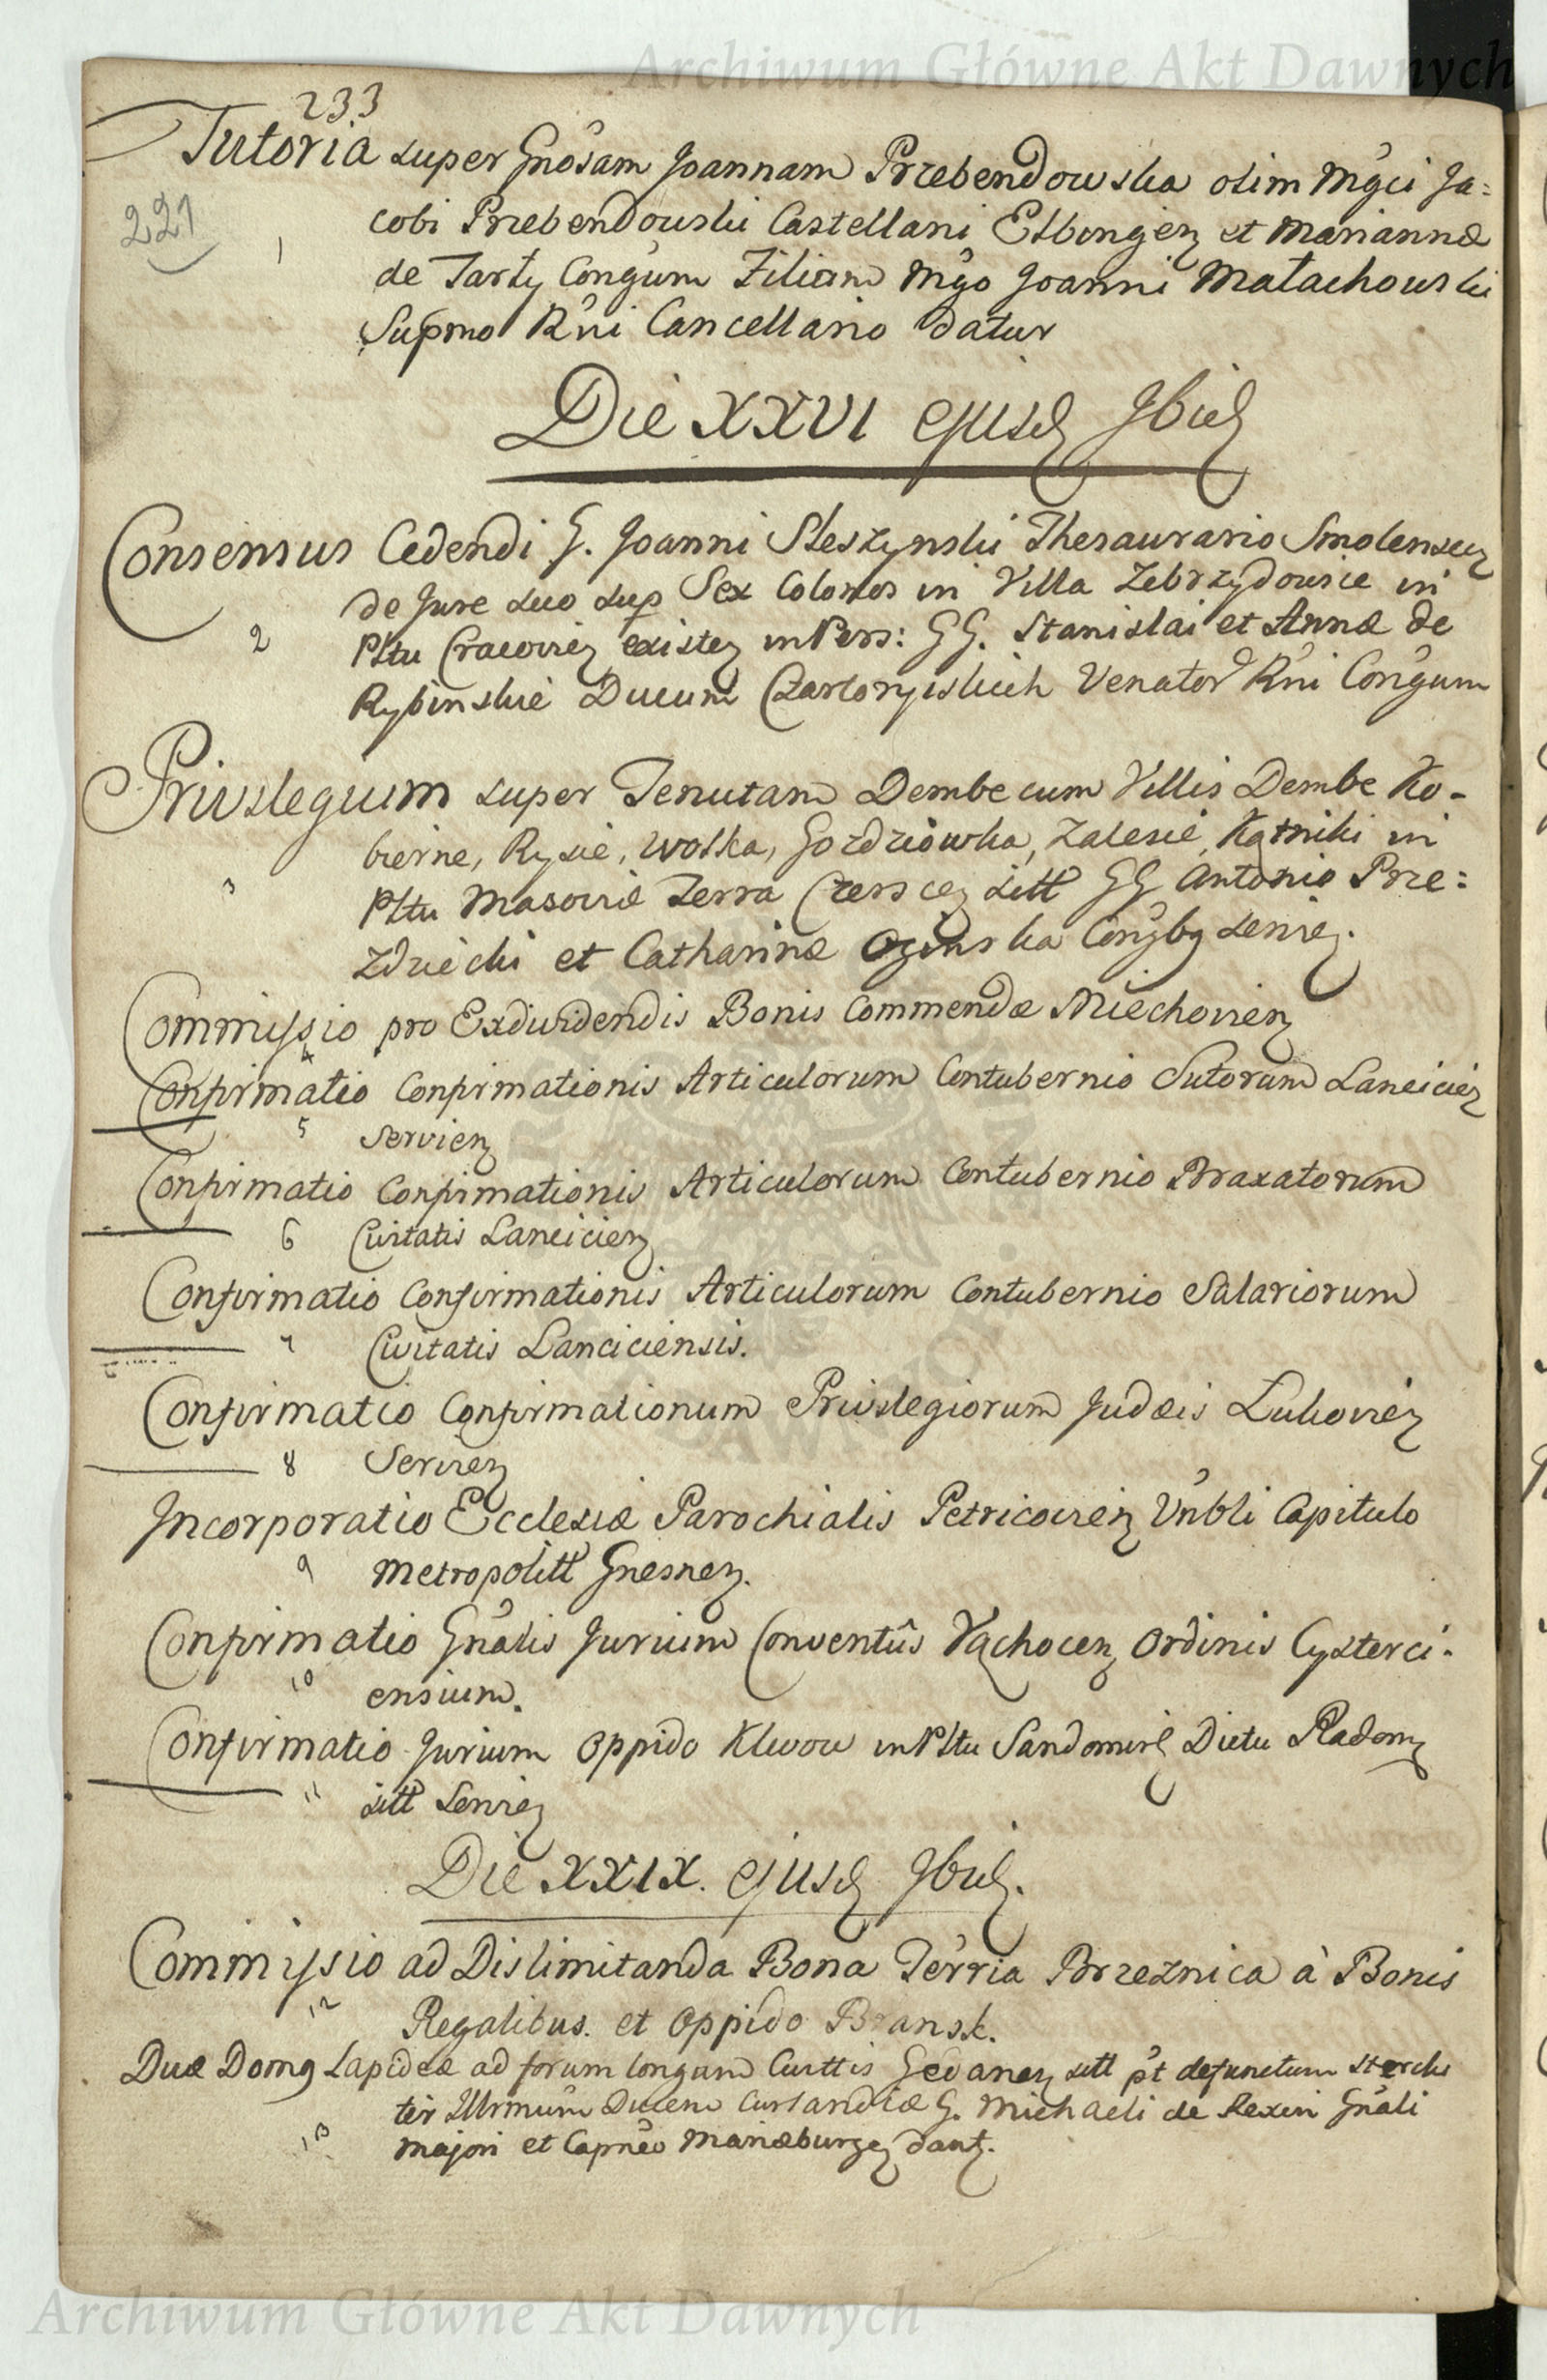 Archiwum Główne Akt Dawnych
233
Tutoria super Gnosam Joannam Przebendowska olim Mgci Ja=
221
1
cobi Przebendowski Castellani Elbingen et Mariannæ
de Tarły Conğum Filiam Mgo Joanni Małachowski
Supmo Rni Cancellario datur
Die XXVI ejusd 9bris
Consensus Cedendi G. Joanni Skeszynski Thesaurario Smolenscen
de Jure suo sup Sex Colonos in Villa Zebrzydowice in
2
Pltu Cracovien existen in Pers: GG. Stanislai et Annæ de
Rybinskie Ducum Czartoryiskich Venator Rni Conğum
Privilegium super Tenutam Dembe cum Villis Dembe Ko-
bierne, Rysie, Wolka, Gozdziówka, Zalesie, Kątniki in
3
Pltu Masoviæ Terra Czerscen sitt GG Antonio Prze=
zdziecki et Catharinæ Oginska Conğbg servien.
Commissio pro Exdividendis Bonis Commendæ Miechovien
4
Confirmatio Confirmationis Articulorum Contubernio Sutorum Lancicien
5
Servien
Confirmatio Confirmationis Articulorum Contubernio Braxatorum
6
Civitatis Lancicien
Confirmatio Confirmationis Articulorum Contubernio Salariorum
7
Civitatis Lanciciensis.
Confirmatio Confirmationum Privilegiorum Judæis Lukovien
8
Servien
Incorporatio Ecclesiæ Parochialis Petricovien Vnbli Capitulo
9
Metropolitt Gnesnen.
Confirmatio Gnalis Jurium Conventûs Vąchocen Ordinis Cysterci-
10
ensium.
Confirmatio Jurium Oppido Klwow in Pltu Sandomir Dictu Radom
11
sitt Servien
Die XXIX. ejusd 9bris.
Commissio ad Dislimitanda Bona Terria Brzeznica à Bonis
12
Regalibus. et Oppido Bransk.
Duæ Domg Lapideæ ad forum longum Cuittis Gedanen sitt pt defunctum
ter Illrmum Ducem Curlandiæ G. Michaeli de Rexin Gnali
13
Majori et Capneo Mariæburgen dant.
Archiwum Główne Akt Dawnych